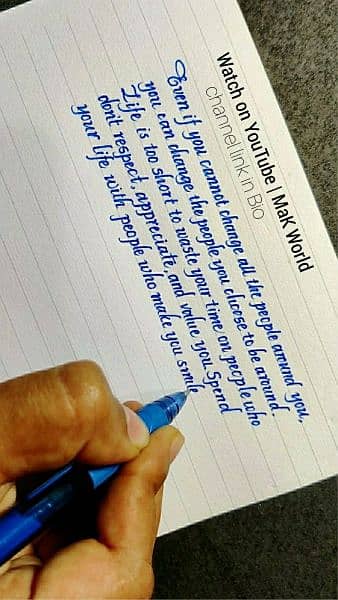 Watch on YouTube | MaK World
channel link in Bio
Even if you cannot change all the people around you,
you can change the people you choose to be around.
Life is too short to waste your time on people who
don't respect, appreciate, and value you. Spend
your life with people who make you smile